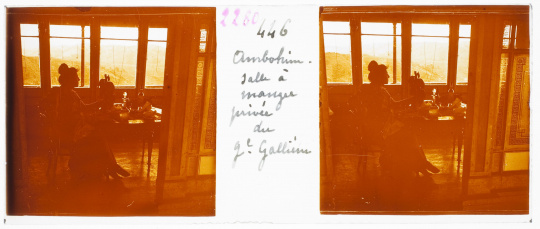 2260
446
Ambohim-
salle à
manger
privée
du
gᵃˡ Galliéni